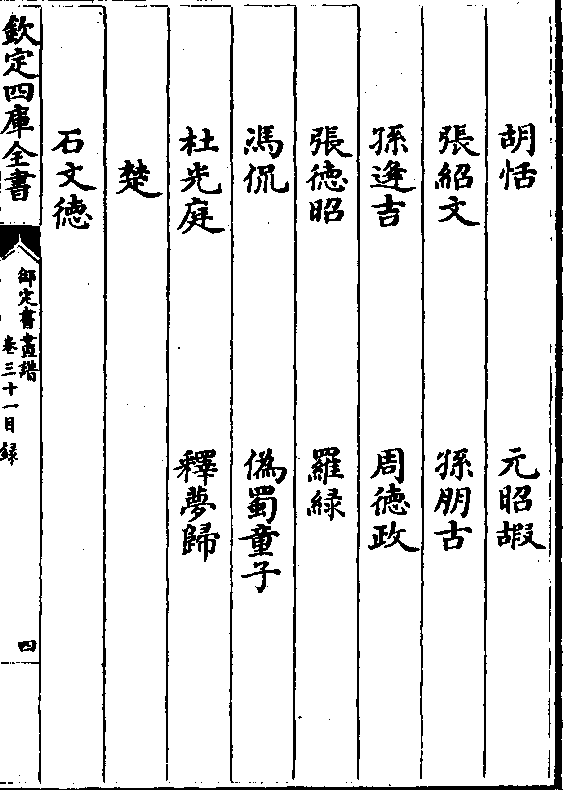 胡恬　元昭嘏
張紹文　孫朋古
孫逢吉　周德政
張德昭　羅綠
馮侃　偽蜀童子
杜光庭　釋夢歸
楚
石文德
欽定四庫全書
御定書畫譜
卷三十一目錄
四